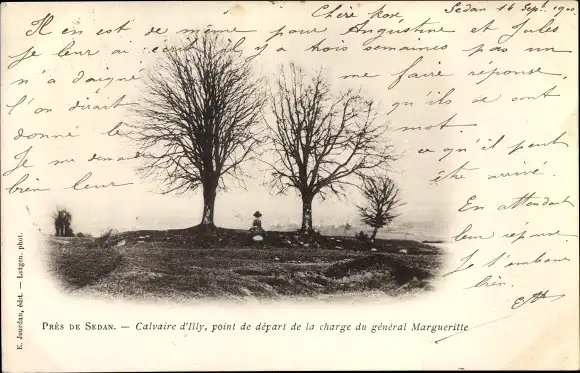 Sedan 14 Sept. 1900
Chère Rose,
Il en est de même pour Augustine et Jules
je leur ai écrit il y a trois semaines pas un
n'a daigné me faire réponse,
l'on dirait qu'ils se ont
donné le mot
Je me demande ce qu'il peut
bien leur être arrivé.
En attendant
leur réponse
Je t'embrasse
bien.
PRÈS DE SEDAN. — Calvaire d'Illy, point de départ de la charge du général Margueritte
E. Jourdan, édit. — Lotgen. phot.